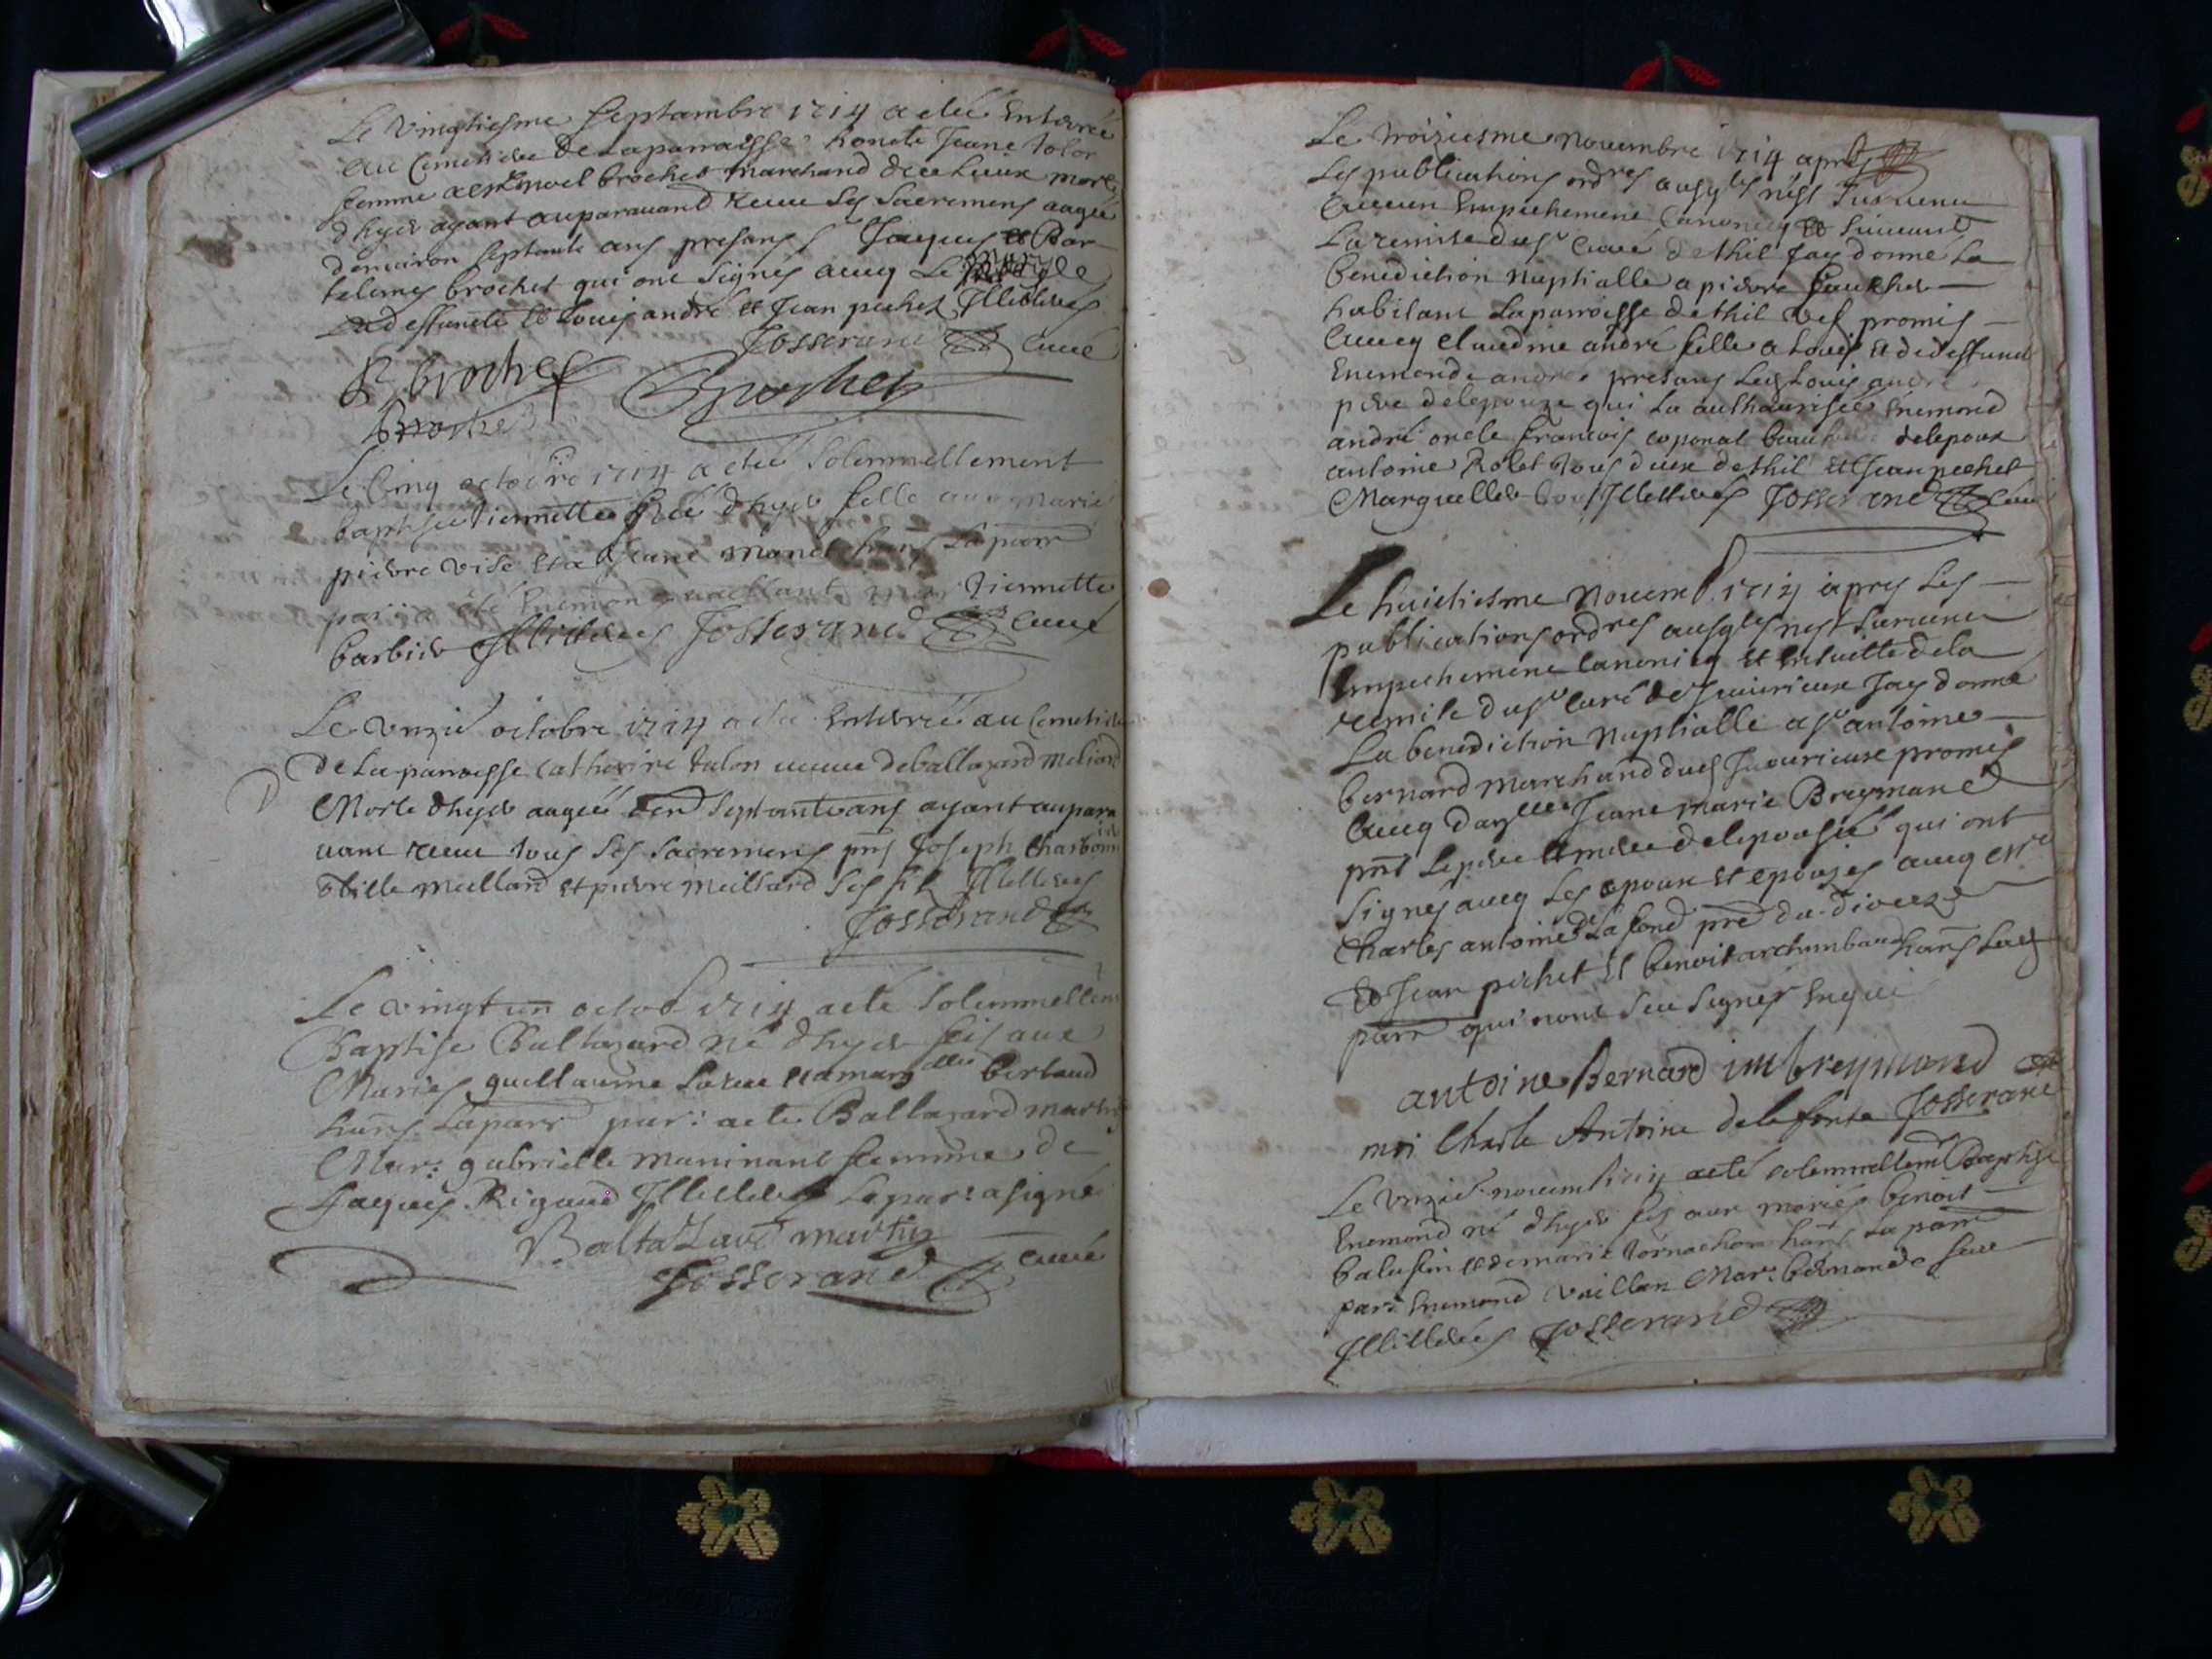 Le vingtiesme septambre 1714 a eteé Enterreé
au Cemetiere de Laparroisse honete Jeane tolon
femme a Noel brochet marchand de ce Lieux morte
dhyer ayant auparauand receu Les Sacremens aageé
denuiron septante ans presans Jaques et Bar
telemy brochet qui ont Signés aueq Le
La deffuncte et Louis andré et Jean pechet Illiteres
Josserand Curé
B brochet
Brochet
brochet
Le Cinq octobre 1714 a eteé Solemnellement
baptiseé tiennette Neé dhyer fille aux marié
pierre vise et a Jeane
par: a eté Enemon vaillant mar: tiennette
barbier Illiteres Josserand Curé
Le vnzie octobre 1714 a eteé Enterreé au Cemetiere
de La parroisse Catherine talon veuue de baltazard Meliard
Morte dhyer aageé den septante ans ayant aupara
uant receu tous Ses Sacremens pnts Joseph Charbonn
Meillard et pierre Meillard Ses fils Illiteres
Josserand
Le vingt un octob 1714 a eté Solemnellem
Baptise Baltazard né dhyer fils aux
Mariés guillaume Larue et a marg berbaud
hans Laparr par: a eté Baltazard martin
Mar: gabrielle maninant femme de
Jaques Rigaud Illiteres Lepar: a signé
BaltaZard martin
Josserand curé
Le troiziesme nouembre 1714 apres
Les publications ordres ausqles nest Suruenu
aucun Empechement Canoniq et Suiuant
La remise du sr Curé dethil Jay donné La
benediction Nuptialle a pierre gauthier
habitant Laparroisse dethil vef promis
aueq Claudine andré fille a Louis et de deffuncte
Enemonde andre presans Led Louis andre
pere delepouze qui La authauriseé Enemond
andré oncle francois coponat beaufrere delepoux
antoine Rolet tous deux dethil et Jean pechet
Marguellier tous Illiterés Josserand Curé
Le huictiesme Nouem 1714 apres Les
publications ordres ausqles nest Suruenu
Empechement Canoniq et Ensuitte dela
remise du sr Curé de Jay donné
La benediction Nuptialle a sr antoine
bernard marchand dud promis
aueq daylle Jeane marie Breymand
pnts Le pere et mere delepouseé qui ont
Signés aueq Les epoux et epouzes aueq Mre
Charles antoine de La fond pre du dioceze
et Jean pechet et benoit archimbaud hans Lad
parr qui nont Sceu Signer Enquis
antoine Bernard im breymand
moi Charle Antoine delafont Josserand
Le vnzie nouem 1714 a eté solemnellem Baptise
Enemond né dhyer fils aux mariés benoit
balufin et de marie tornachon hans La parr
par: Enemond vaillan Mar: bernarde
Illiterés Josserand